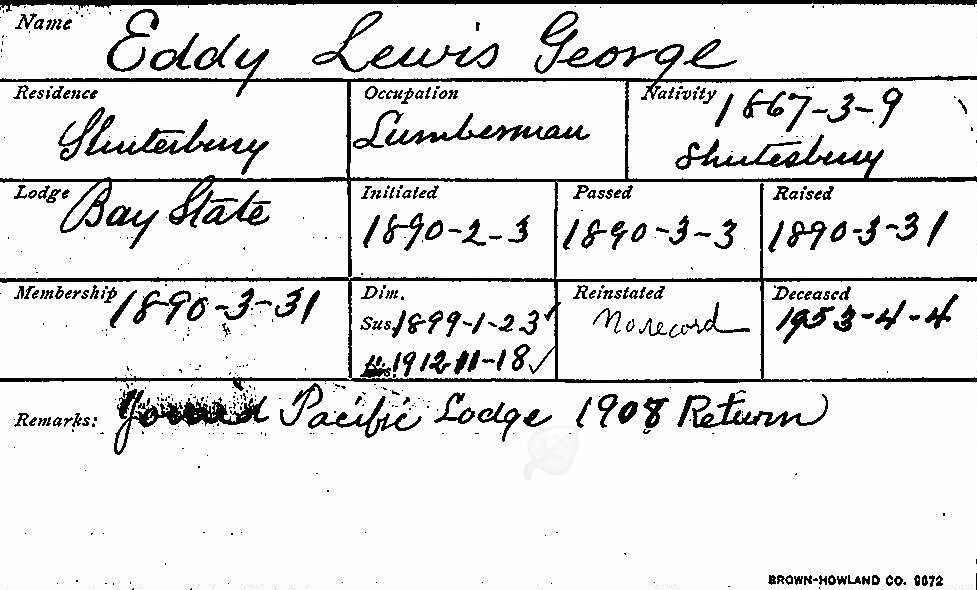 Name Eddy Lewis George
Residence Shutesbury
Occupation Lumberman
Nativity 1867-3-9
Shutesbury
Lodge Bay State
Initiated 1890-2-3
Passed 1890-3-3
Raised 1890-3-31
Membership 1890-3-31
Dim.
Sus. 1899-1-23 ✓
1912-11-18 ✓
Reinstated No record
Deceased 1953-4-4
Remarks: Joined Pacific Lodge 1908 Return
BROWN-HOWLAND CO. 9672